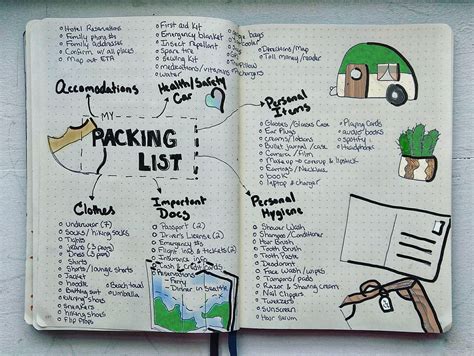 Hotel Reservations
Family phone #s
Family Addresses
Confirm w/ all places
Map out ETA
Accomodations
First aid Kit
Emergency blanket
Insect repellant
Spare tire
Sewing Kit
medications/vitamins
water
Health/Safety
Car
bags
cooler
Pillow
chargers
Directions/Map
Toll money/reader
MY
PACKING
LIST
Personal
Items
Glasses/Glasses Case
Ear Plugs
creams/lotions
Bullet journal/case
Camera/Film
Makeup → coverup & lipstick
Earrings/Necklace
book
laptop & charger
Playing Cards
audio books
spotify
Headphones
Clothes
Underwear (7)
Socks/hiking socks
Tights
Jeans (3 pairs)
Dress (3 pairs)
Shirts
Shorts/lounge shorts
Jacket
hoodie
Bathing suit
Hiking shoes
sneakers
hiking shoes
Flip Flops
Beach towel
Umbrella
Important
Docs
Passport (2)
Driver's License (2)
Emergency #s
Flight info & tickets (2)
Insurance info
Cash & Credit Cards
Reservations
Ferry
Dinner in Seattle
Personal
Hygiene
Shower Wash
Shampoo/Conditioner
Hair Brush
Tooth Brush
Tooth Paste
Deodorant
Face Wash/wipes
Tampons/pads
Razor & Shaving cream
Nail Clippers
Tweezers
sunscreen
Hair serum